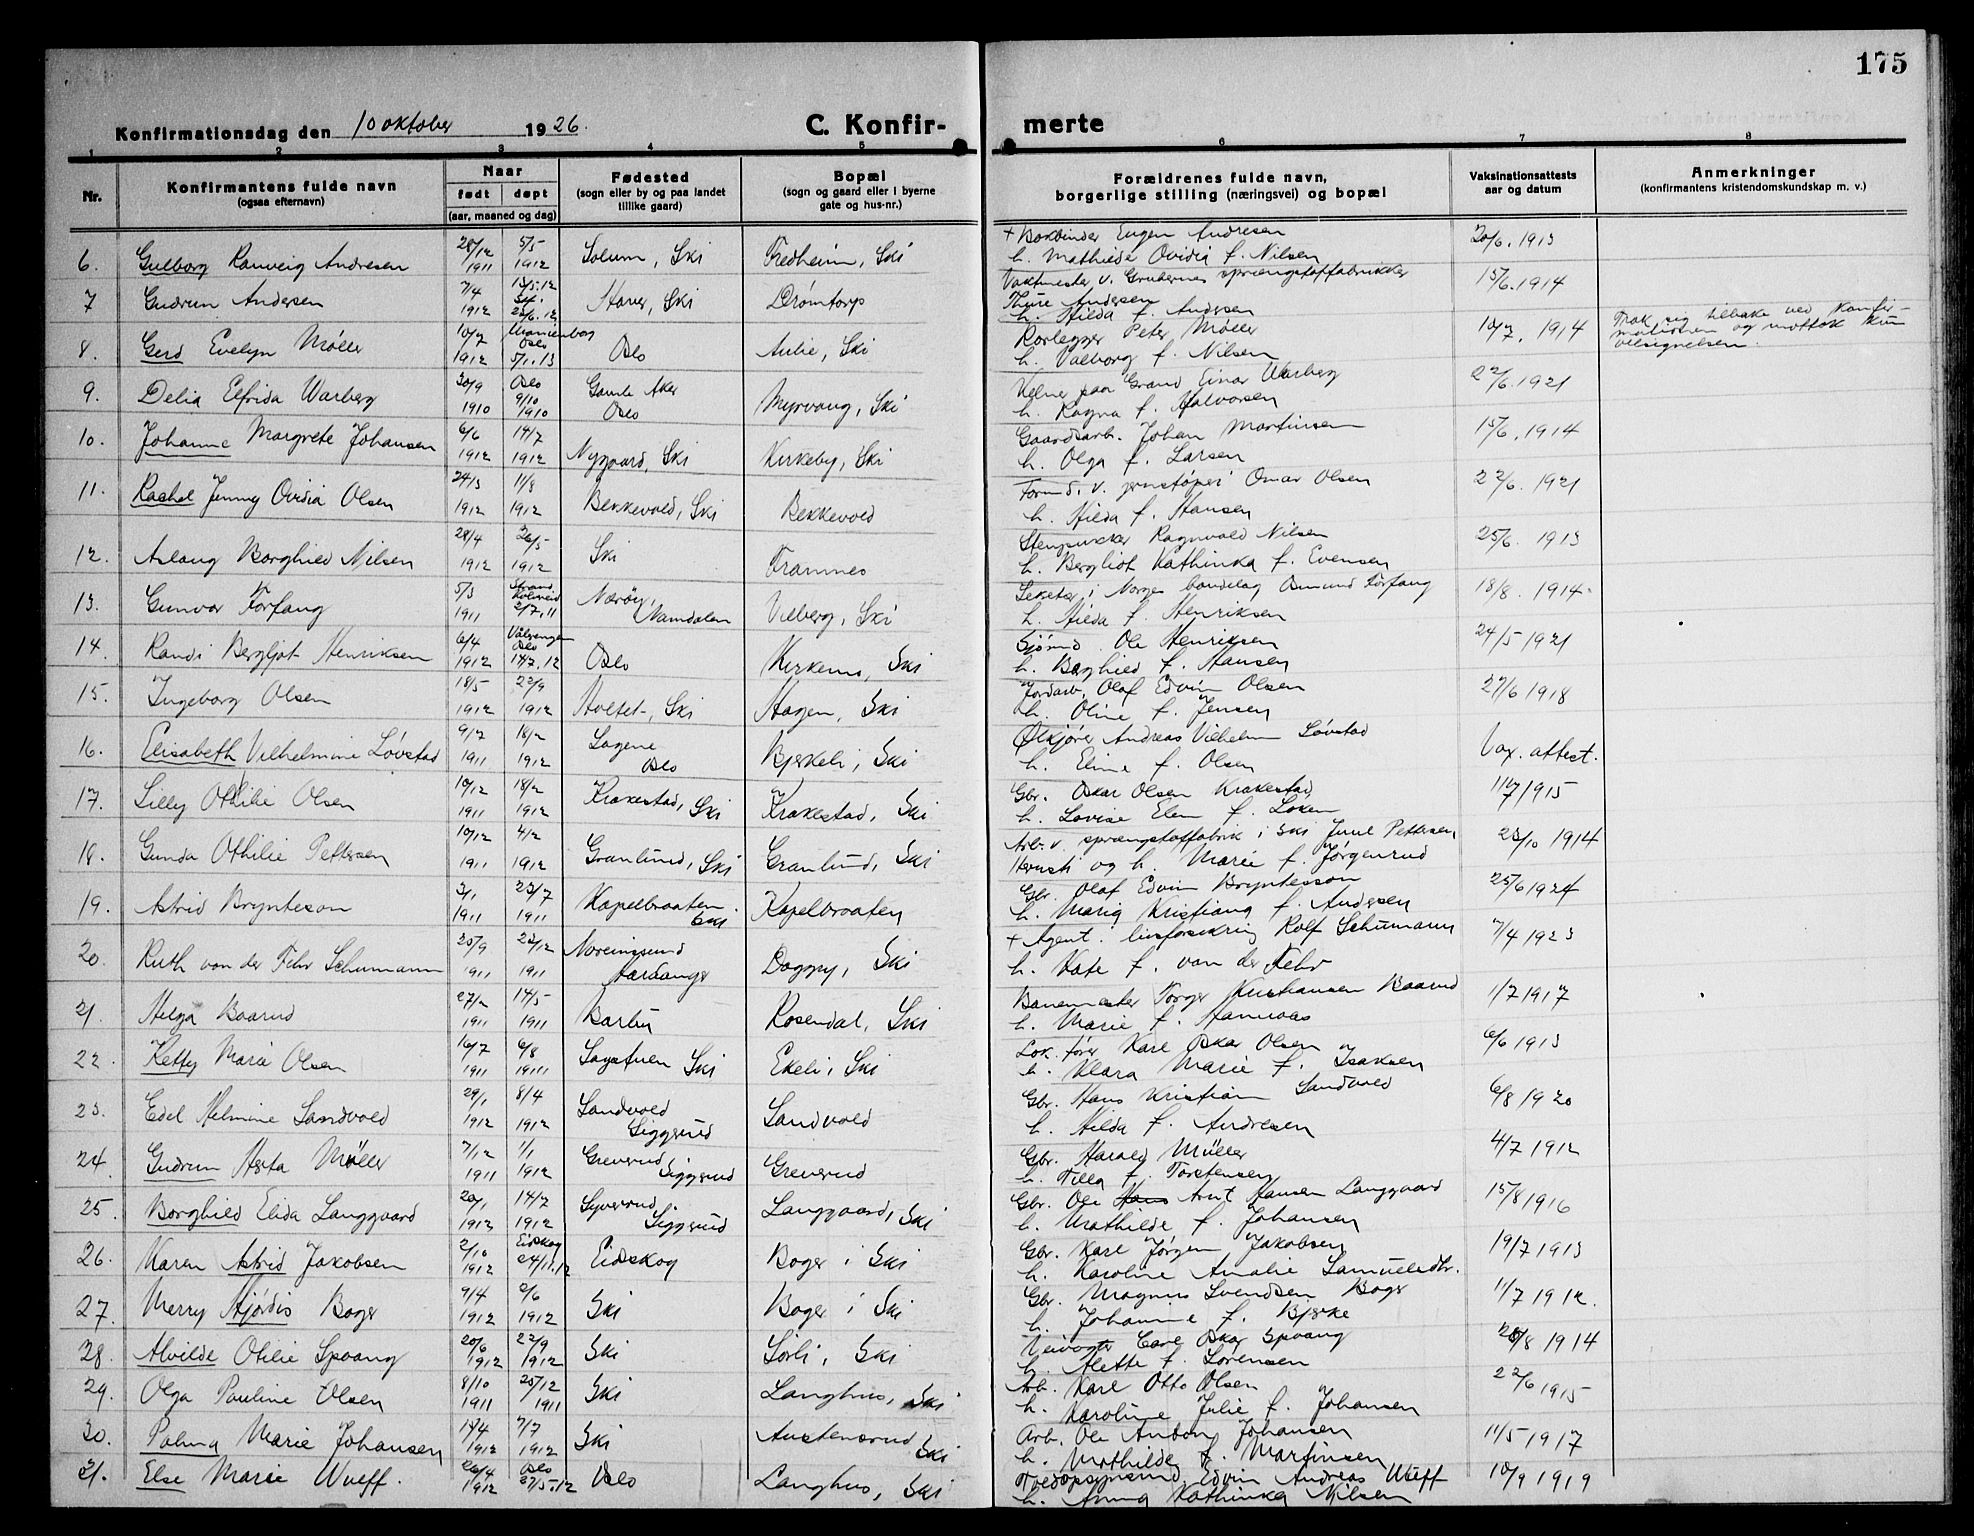 175
Konfirmationsdag den 10 oktober 1926.
C. Konfir-
merte
1 2 3 4 5 6 7 8
Nr.
Konfirmantens fulde navn
(ogsaa efternavn)
Naar
født døpt
(aar, maaned og dag)
Fødested
(sogn eller by og paa landet
tillike gaard)
Bopæl
(sogn og gaard eller i byerne
gate og hus-nr.)
Forældrenes fulde navn,
borgerlige stilling (næringsvei) og bopæl
Vaksinationsattests
aar og datum
Anmerkninger
(konfirmantens kristendomskundskap m. v.)
6. Gulborg Ranveig Andresen 28/12 1911 5/5 1912 Solum, Ski Fredheim, Ski + Bokbinder Eugen Andresen
h. Mathilde Ovidia f. Nilsen 20/6. 1913
7 Gudrun Andersen 7/4 1912 Haver, Ski Drømtorp Vaktmester v. Grubernes sprængstoffabrikker
Thure Andersen
h. Hilda f. Andersen 15/6. 1914
8. Gerd Evelyn Møller 10/7 1912 Oslo 5/1. 13 Oslo Aulie, Ski Rørlegger Peter Møller
h. Valborg f. Nilsen 10/7. 1914 Trak sig tilbake ved konfir-
mationen og mottok kun
velsignelsen.
9. Delia Elfrida Warberg 30/9 1910 Oslo 9/10 1910 Gamle Aker Oslo Myrvang, Ski Kelner paa Grand Einar Warberg
h. Ragna f. Halvorsen 22/6. 1921
10. Johanne Margrete Johansen 6/6 1912 14/7 1912 Nygaard, Ski Kirkeby, Ski Gaardsarb. Johan Martinsen
h. Olga f. Larsen 15/6. 1914
11. Rachel Jenny Ovidia Olsen 24/3 1912 11/8 1912 Bekkevold, Ski Bekkevold Formd. v. jernstøperi Omar Olsen
h. Hilda f. Hansen 22/6. 1921
12. Aslaug Borghild Nilsen 28/4 1912 26/5 1912 Ski Framnes Stenpukker Ragnvald Nilsen
h. Bergliot Kathinka f. Evensen 25/6. 1913
13. Gunvor Forfang 5/3 1911 2/7, 11 Nærøy, Namdalen Vilberg, Ski Seketær i Norges bondelag Osmund Forfang
h. Hilda f. Henriksen 18/8. 1914
14. Randi Bergljot Henriksen 6/4 1912 Vålerengen Oslo 14/7, 12 Oslo Kirkemo, Ski Sjømd. Ole Henriksen
h. Borghild f. Hansen 24/5 1921
15. Ingeborg Olsen 18/5 1912 22/9 1912 Holtet, Ski Hagen, Ski Jordarb. Olaf Edvin Olsen
h. Oline f. Jensen 27/6 1918
16. Elisabeth Vilhelmine Løvstad 9/7 1911 18/2 1912 Sagene Oslo Bjerkeli, Ski Ølkjører Andreas Vilhelm Løvstad
h. Eline f. Olsen Vax. attest.
17. Lilly Othilie Olsen 10/12 1911 18/2 1912 Krakestad, Ski Krakestad, Ski Gbr. Oskar Olsen Krakestad
h. Lovise Elen f. Løken 11/7 1915
18. Gunda Othilie Pettersen 10/12 1911 4/2 1912 Granlund, Ski Granlund, Ski Arb. v. sprængstoffabrik i Ski Juul Pettersen
og h. Marie f. Jørgenrud 23/10 1914
19. Astrid Brynteson 3/1 1911 23/7 1911 Kapelbraaten Ski Kapelbraaten Gbr. Olof Edvin Bryntesson
h. Marig Kristiana f. Andersen 25/6 1924
20. Ruth von der Fehr Schumann 25/9 1911 23/12 1911 Noreimsund Hardanger Dagny, Ski + Agent i livsforsikring Rolf Schumann
h. Kate f. von der Fehr 7/4 1923
21. Helga Baarud 27/2 1911 14/5 1911 Barbu Rosendal, Ski Banemester Torger Kristiansen Baarud
h. Marie f. Hannaas 1/7 1917
22. Ketty Marie Olsen 16/7 1911 6/8 1911 Sagstuen Ski Ekeli, Ski Lok. fører Karl Oskar Olsen
h. Klara Marie f. Isaksen 6/6 1913
23. Edel Helmine Sandvold 29/1 1912 8/4 1912 Sandvold Siggerud Sandvold Gbr. Hans Kristian Sandvold
h. Hilda f. Andresen 6/8 1920
24. Gudrun Herta Møller 7/12 1911 1/1 1912 Greverud Siggerud Greverud Gbr. Harald Müller
h. Tilla f. Torstensen 4/7 1912
25. Borghild Elida Langgaard 20/1 1912 14/7 1912 Syverud, Siggerud Langgaard, Ski Gbr. Ole Hans Arnt Hansen Langgaard
h. Mathilde f. Johansen 15/8 1916
26. Maren Astrid Jakobsen 2/10 1912 Eidskog 24/11. 12 Eidskog Boger i Ski Gbr. Karl Jørgen Jakobsen
h. Karoline Amalie Samuelsdtr. 19/7 1913
27. Merry Hjørdis Boger 9/4 1912 2/6 1912 Ski Boger i Ski Gbr. Magnus Svendsen Boger
h. Johanne f. Bjerke 11/7 1912.
28. Alvilde Otilie Spvang 20/6 1912 22/9 1912 Ski Sørli, Ski Veivogter Carl Oskar Spvang
h. Alette f. Sørensen 28/8 1914
29. Olga Pauline Olsen 8/10 1911 25/12 1911 Ski Langhus, Ski Arb. Karl Otto Olsen
h. Karoline Julie f. Johansen 22/6 1915
30. Palma Marie Johansen 14/4 1912 7/7 1912 Ski Austensrud Ski Arb. Ole Anton Johansen
h. Mathilde f. Martinsen 11/5 1917
31. Else Marie Wulff. 26/4 1912 Oslo 27/5. 12 Oslo Langhus, Ski Edvin Andreas Wulff
h. Anna Kathinka Nilsen 10/9 1919